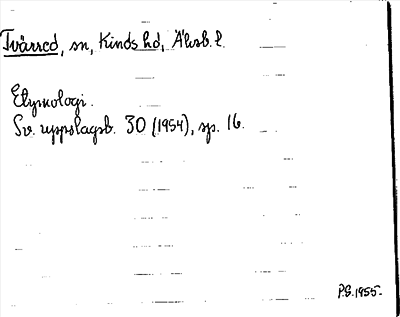 Tvärred, sn, Kinds hd, Älvsb. l.
Etymologi.
Sv. uppslagsb. 30 (1954), sp. 16.
P.G. 1955.